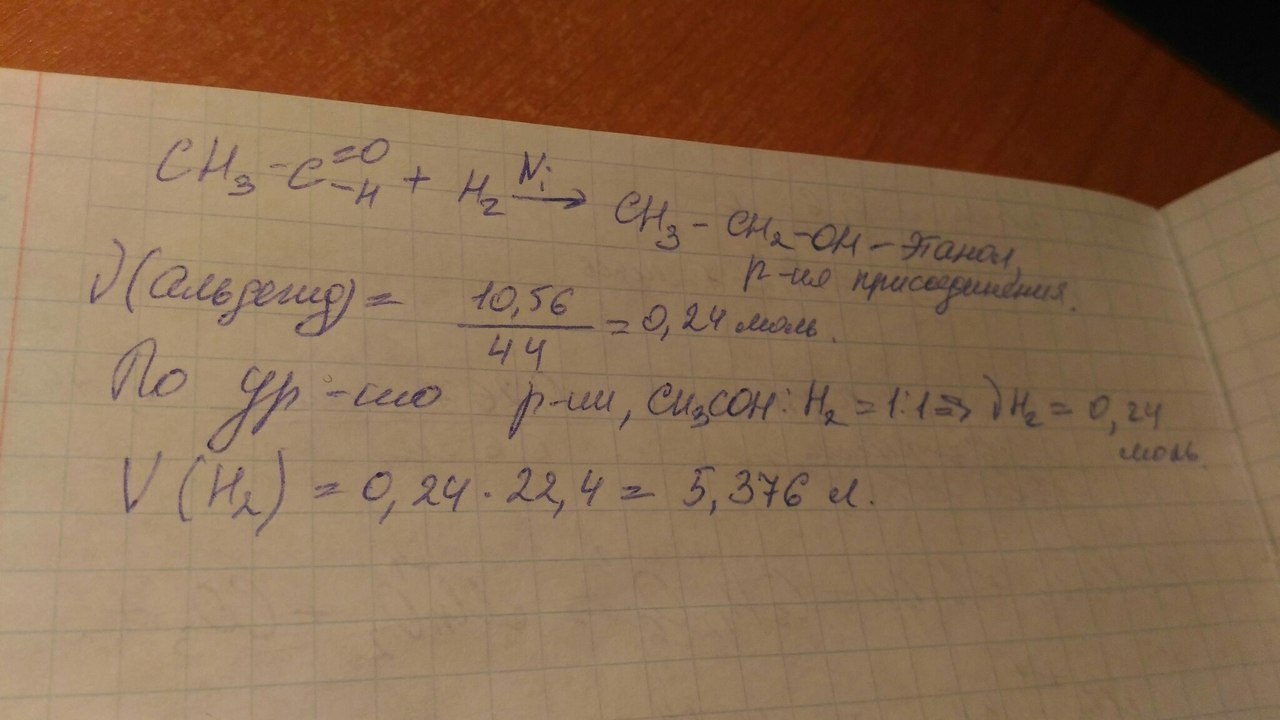 CH₃-C=O-H + H₂ Ni→ CH₃-CH₂-OH-Этанол,
р-ия присоединения.
ν(альдегид) = 10,56/44 = 0,24 моль.
По ур-ию р-ии, CH₃COH:H₂ = 1:1 ⇒ νH₂ = 0,24
моль.
V(H₂) = 0,24·22,4 = 5,376 л.